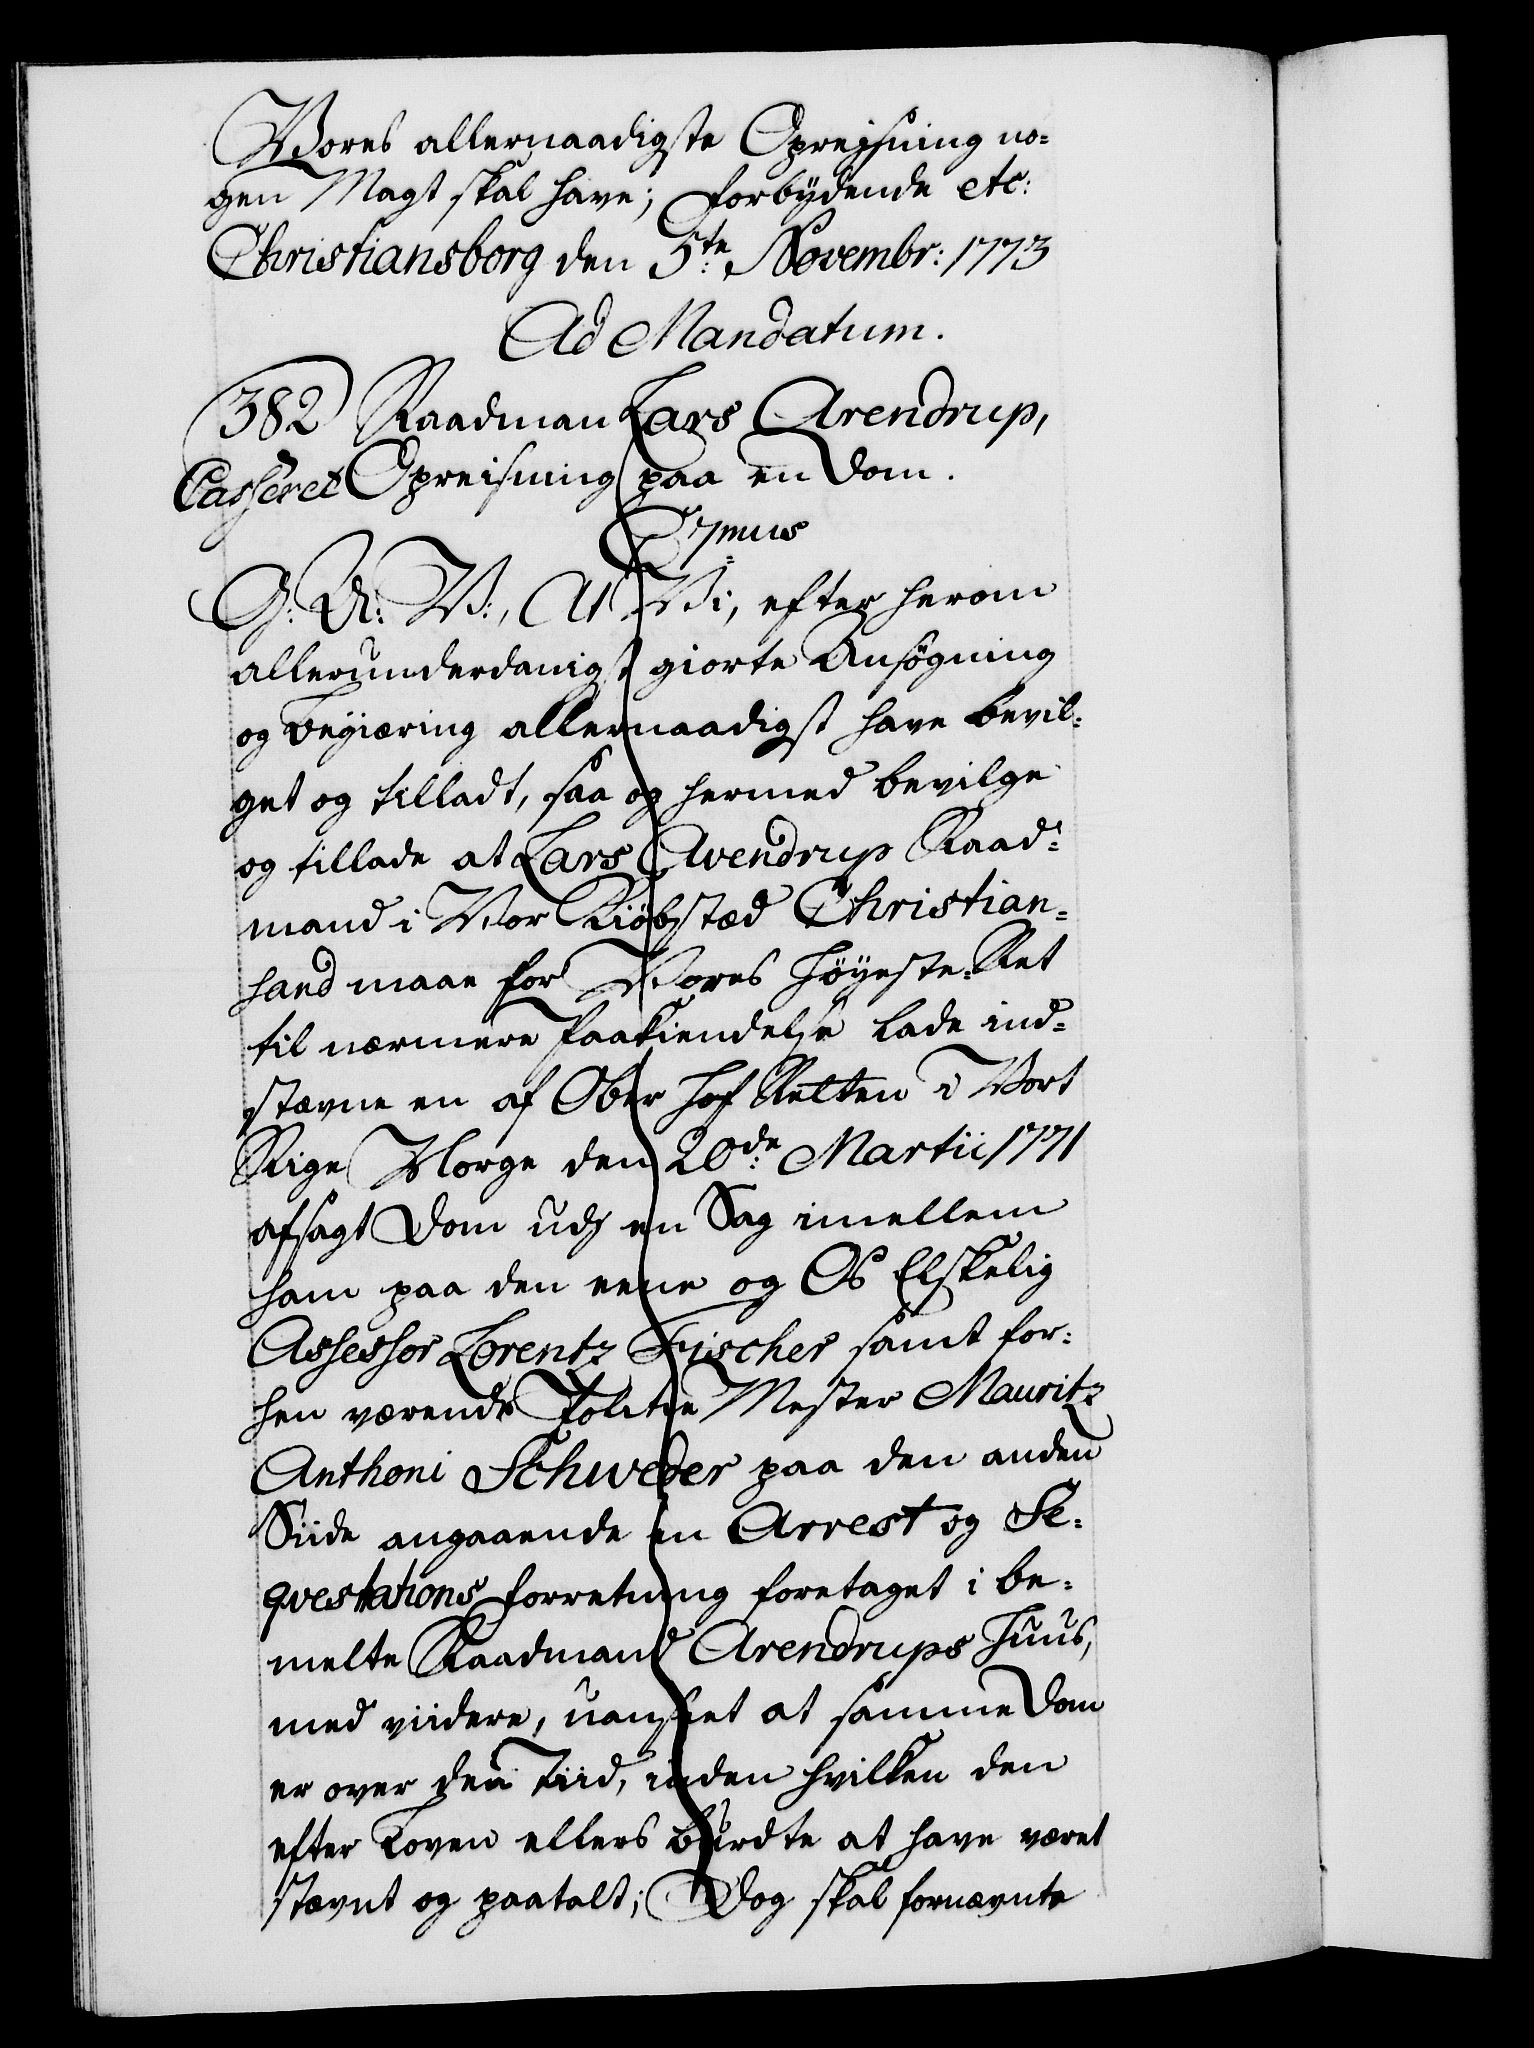 Vores allernaadigste Opreysning no=
gen Magt skal have; Forbydende etc:
Christiansborg den 5te Novembr: 1773
Ad Mandatum.
382 Raadman Lars Arendrup,
Casseret Opreisning paa en Dom.
G: A: V:, At Vi, efter herom
allerunderdanigst giorte Ansøgning
og Begiæring allernaadigst have bevil=
get og tilladt, saa og hermed bevilge
og tillade at Lars Arendrup Raad=
mand i Vor Kiøbstæd Christian=
sand maae for Vores Høyeste-Ret
til nærmere Paakiendelse lade ind=
stævne en af Ober Hof Retten i Vort
Rige Norge den 20de Martii 1771
afsagt Dom udj en Sag imellem
ham paa den eene og Os Elskelig
Assessor Lorentz Fischer samt for=
hen værende Politie Mester Mauritz
Anthoni Schweder paa den anden
Siide angaaende en Arrest og Se=
qvestrations Forretning foretaget i be=
melte Raadmand Arendrups Huus,
med viidere, uanseet at samme Dom
er over den Tiid, inden hvilken den
efter Loven ellers burdte at have været
stævnt og paatalt; Dog skal fornævnte